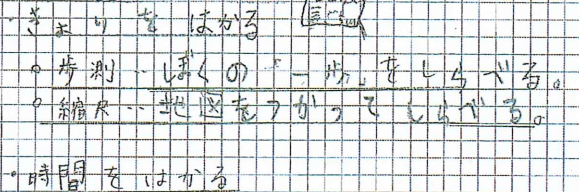 ・きょりをはかる
○歩測…ぼくの「一歩」をしらべる。
○縮尺…地図をつかってしらべる。
・時間をはかる